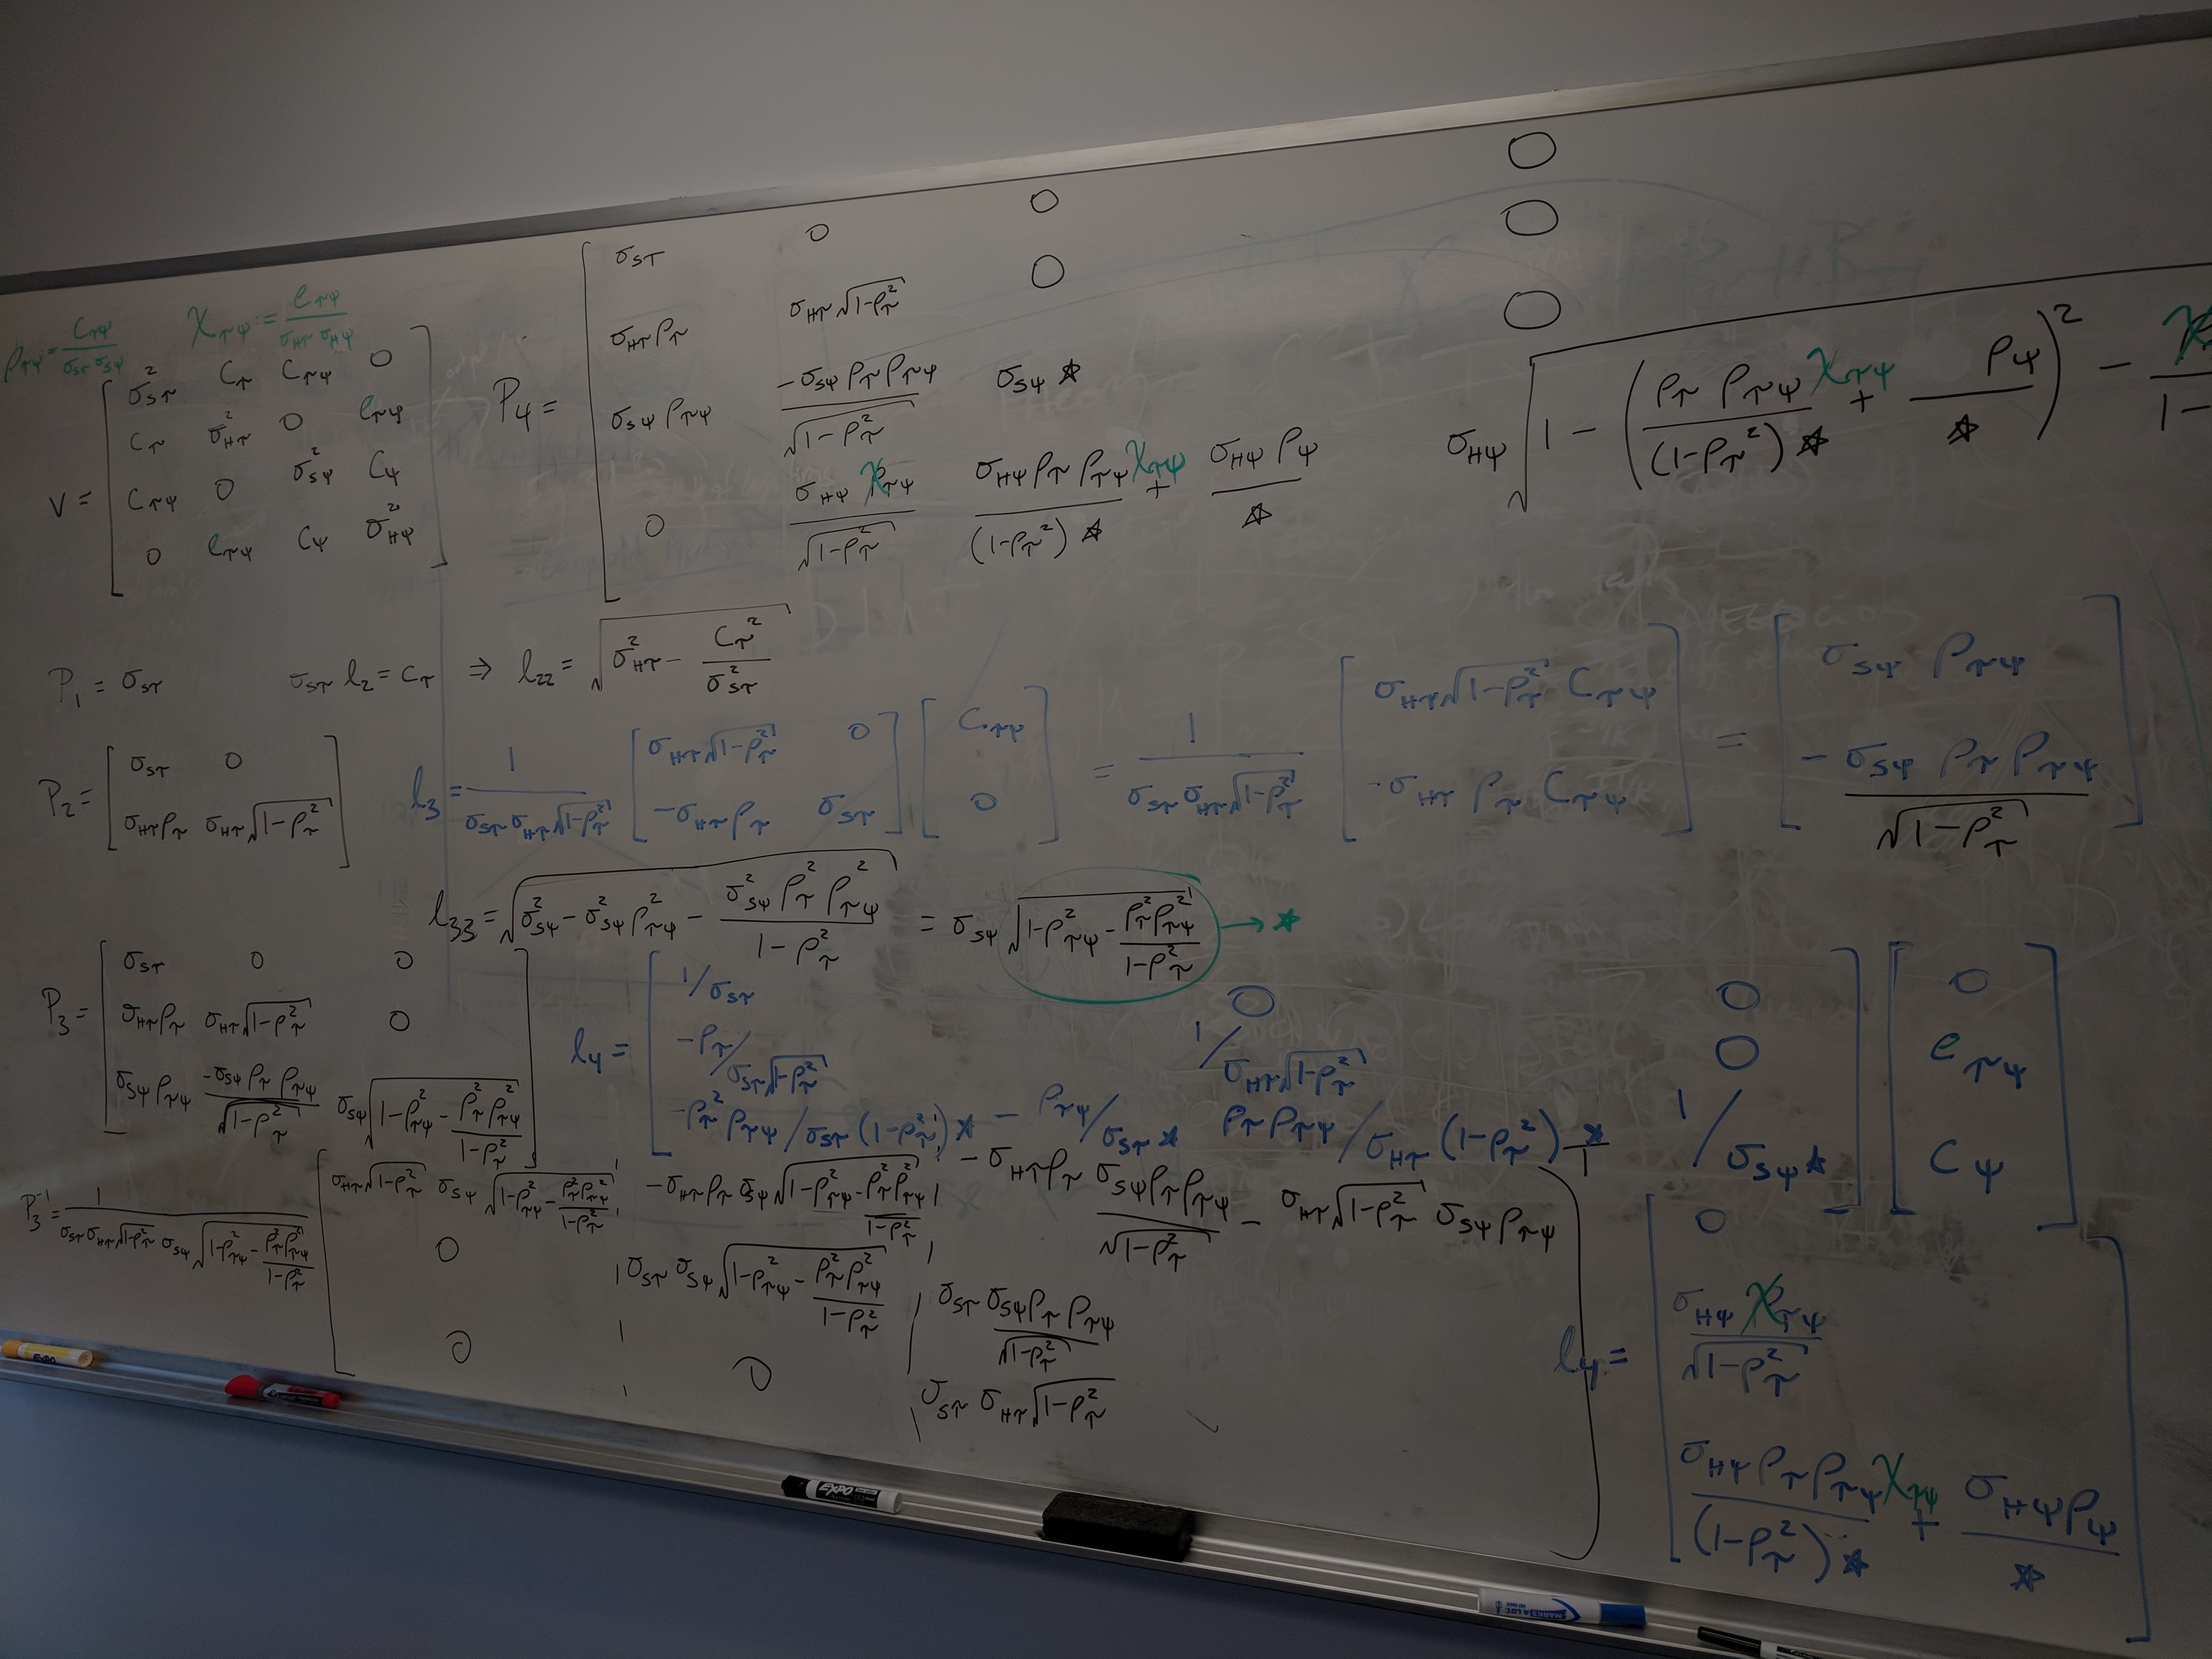 ρ_τψ = C_τψ / (σ_Sτ σ_Sψ)    χ_τψ := e_τψ / (σ_Hτ σ_Hψ)
V = [ σ²_Sτ  C_τ  C_τψ  0
C_τ  σ²_Hτ  0  e_τψ
C_τψ  0  σ²_Sψ  C_ψ
0  e_τψ  C_ψ  σ²_Hψ ]
P_4 = [ σ_Sτ  0  0  0
σ_Hτ ρ_τ  σ_Hτ √(1-ρ_τ²)  0  0
σ_Sψ ρ_τψ  -σ_Sψ ρ_τ ρ_τψ / √(1-ρ_τ²)  σ_Sψ ☆  0
0  σ_Hψ χ_τψ / √(1-ρ_τ²)  σ_Hψ ρ_τ ρ_τψ χ_τψ / ((1-ρ_τ²) ☆) + σ_Hψ ρ_ψ / ☆  σ_Hψ √(1 - (ρ_τ ρ_τψ χ_τψ / ((1-ρ_τ²) ☆) + ρ_ψ / ☆)² - χ / 1-
P_1 = σ_Sτ    σ_Sτ l_2 = C_τ ⇒ l_22 = √(σ²_Hτ - C_τ² / σ²_Sτ)
P_2 = [ σ_Sτ  0
σ_Hτ ρ_τ  σ_Hτ √(1-ρ_τ²) ]
l_3 = 1 / (σ_Sτ σ_Hτ √(1-ρ_τ²)) [ σ_Hτ √(1-ρ_τ²)  0
-σ_Hτ ρ_τ  σ_Sτ ] [ C_τψ
0 ] = 1 / (σ_Sτ σ_Hτ √(1-ρ_τ²)) [ σ_Hτ √(1-ρ_τ²) C_τψ
-σ_Hτ ρ_τ C_τψ ] = [ σ_Sψ ρ_τψ
-σ_Sψ ρ_τ ρ_τψ / √(1-ρ_τ²) ]
l_33 = √(σ²_Sψ - σ²_Sψ ρ²_τψ - σ²_Sψ ρ_τ² ρ²_τψ / (1-ρ_τ²)) = σ_Sψ √(1-ρ²_τψ - ρ_τ² ρ²_τψ / (1-ρ_τ²)) → ☆
P_3 = [ σ_Sτ  0  0
σ_Hτ ρ_τ  σ_Hτ √(1-ρ_τ²)  0
σ_Sψ ρ_τψ  -σ_Sψ ρ_τ ρ_τψ / √(1-ρ_τ²)  σ_Sψ √(1-ρ²_τψ - ρ_τ² ρ²_τψ / (1-ρ_τ²)) ]
l_4 = [ 1/σ_Sτ  0  0
-ρ_τ / σ_Sτ √(1-ρ_τ²)  1 / σ_Hτ √(1-ρ_τ²)  0
-ρ_τ² ρ_τψ / σ_Sτ (1-ρ_τ²) ☆ - ρ_τψ / σ_Sτ ☆  ρ_τ ρ_τψ / σ_Hτ (1-ρ_τ²) ☆  1 / σ_Sψ ☆ ] [ 0
e_τψ
C_ψ ]
P_3⁻¹ = 1 / (σ_Sτ σ_Hτ √(1-ρ_τ²) σ_Sψ √(1-ρ²_τψ - ρ_τ² ρ²_τψ / (1-ρ_τ²))) [ σ_Hτ √(1-ρ_τ²) σ_Sψ √(1-ρ²_τψ - ρ_τ² ρ²_τψ / (1-ρ_τ²))  -σ_Hτ ρ_τ σ_Sψ √(1-ρ²_τψ - ρ_τ² ρ²_τψ / (1-ρ_τ²))  -σ_Hτ ρ_τ σ_Sψ ρ_τ ρ_τψ / √(1-ρ_τ²) - σ_Hτ √(1-ρ_τ²) σ_Sψ ρ_τψ
0  σ_Sτ σ_Sψ √(1-ρ²_τψ - ρ_τ² ρ²_τψ / (1-ρ_τ²))  σ_Sτ σ_Sψ ρ_τ ρ_τψ / √(1-ρ_τ²)
0  0  σ_Sτ σ_Hτ √(1-ρ_τ²) ]
l_4 = [ 0
σ_Hψ χ_τψ / √(1-ρ_τ²)
σ_Hψ ρ_τ ρ_τψ χ_τψ / ((1-ρ_τ²) ☆) + σ_Hψ ρ_ψ / ☆ ]
EXPO
EXPO
MARKS A LOT